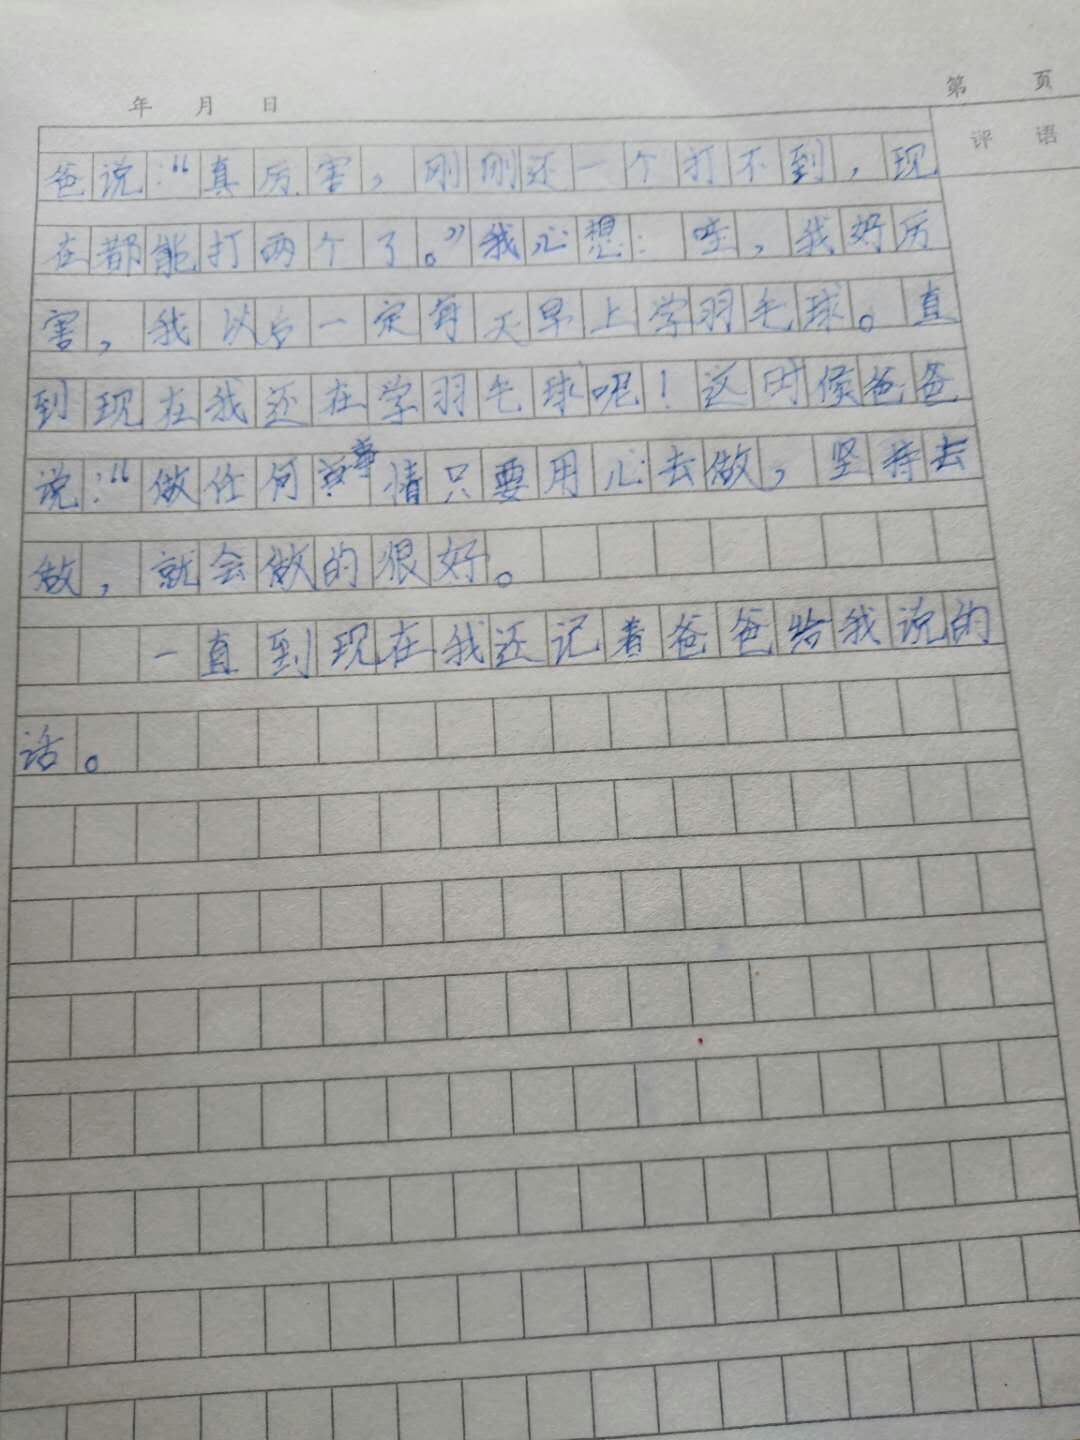 年 月 日
第 页
评 语
爸说:“真厉害,刚刚还一个打不到,现
在都能打两个了。”我心想:哇,我好厉
害,我以后一定每天早上学羽毛球。直
到现在我还在学羽毛球呢!这时候爸爸
说:“做任何事情只要用心去做,坚持去
做,就会做的很好。
一直到现在我还记着爸爸给我说的
话。